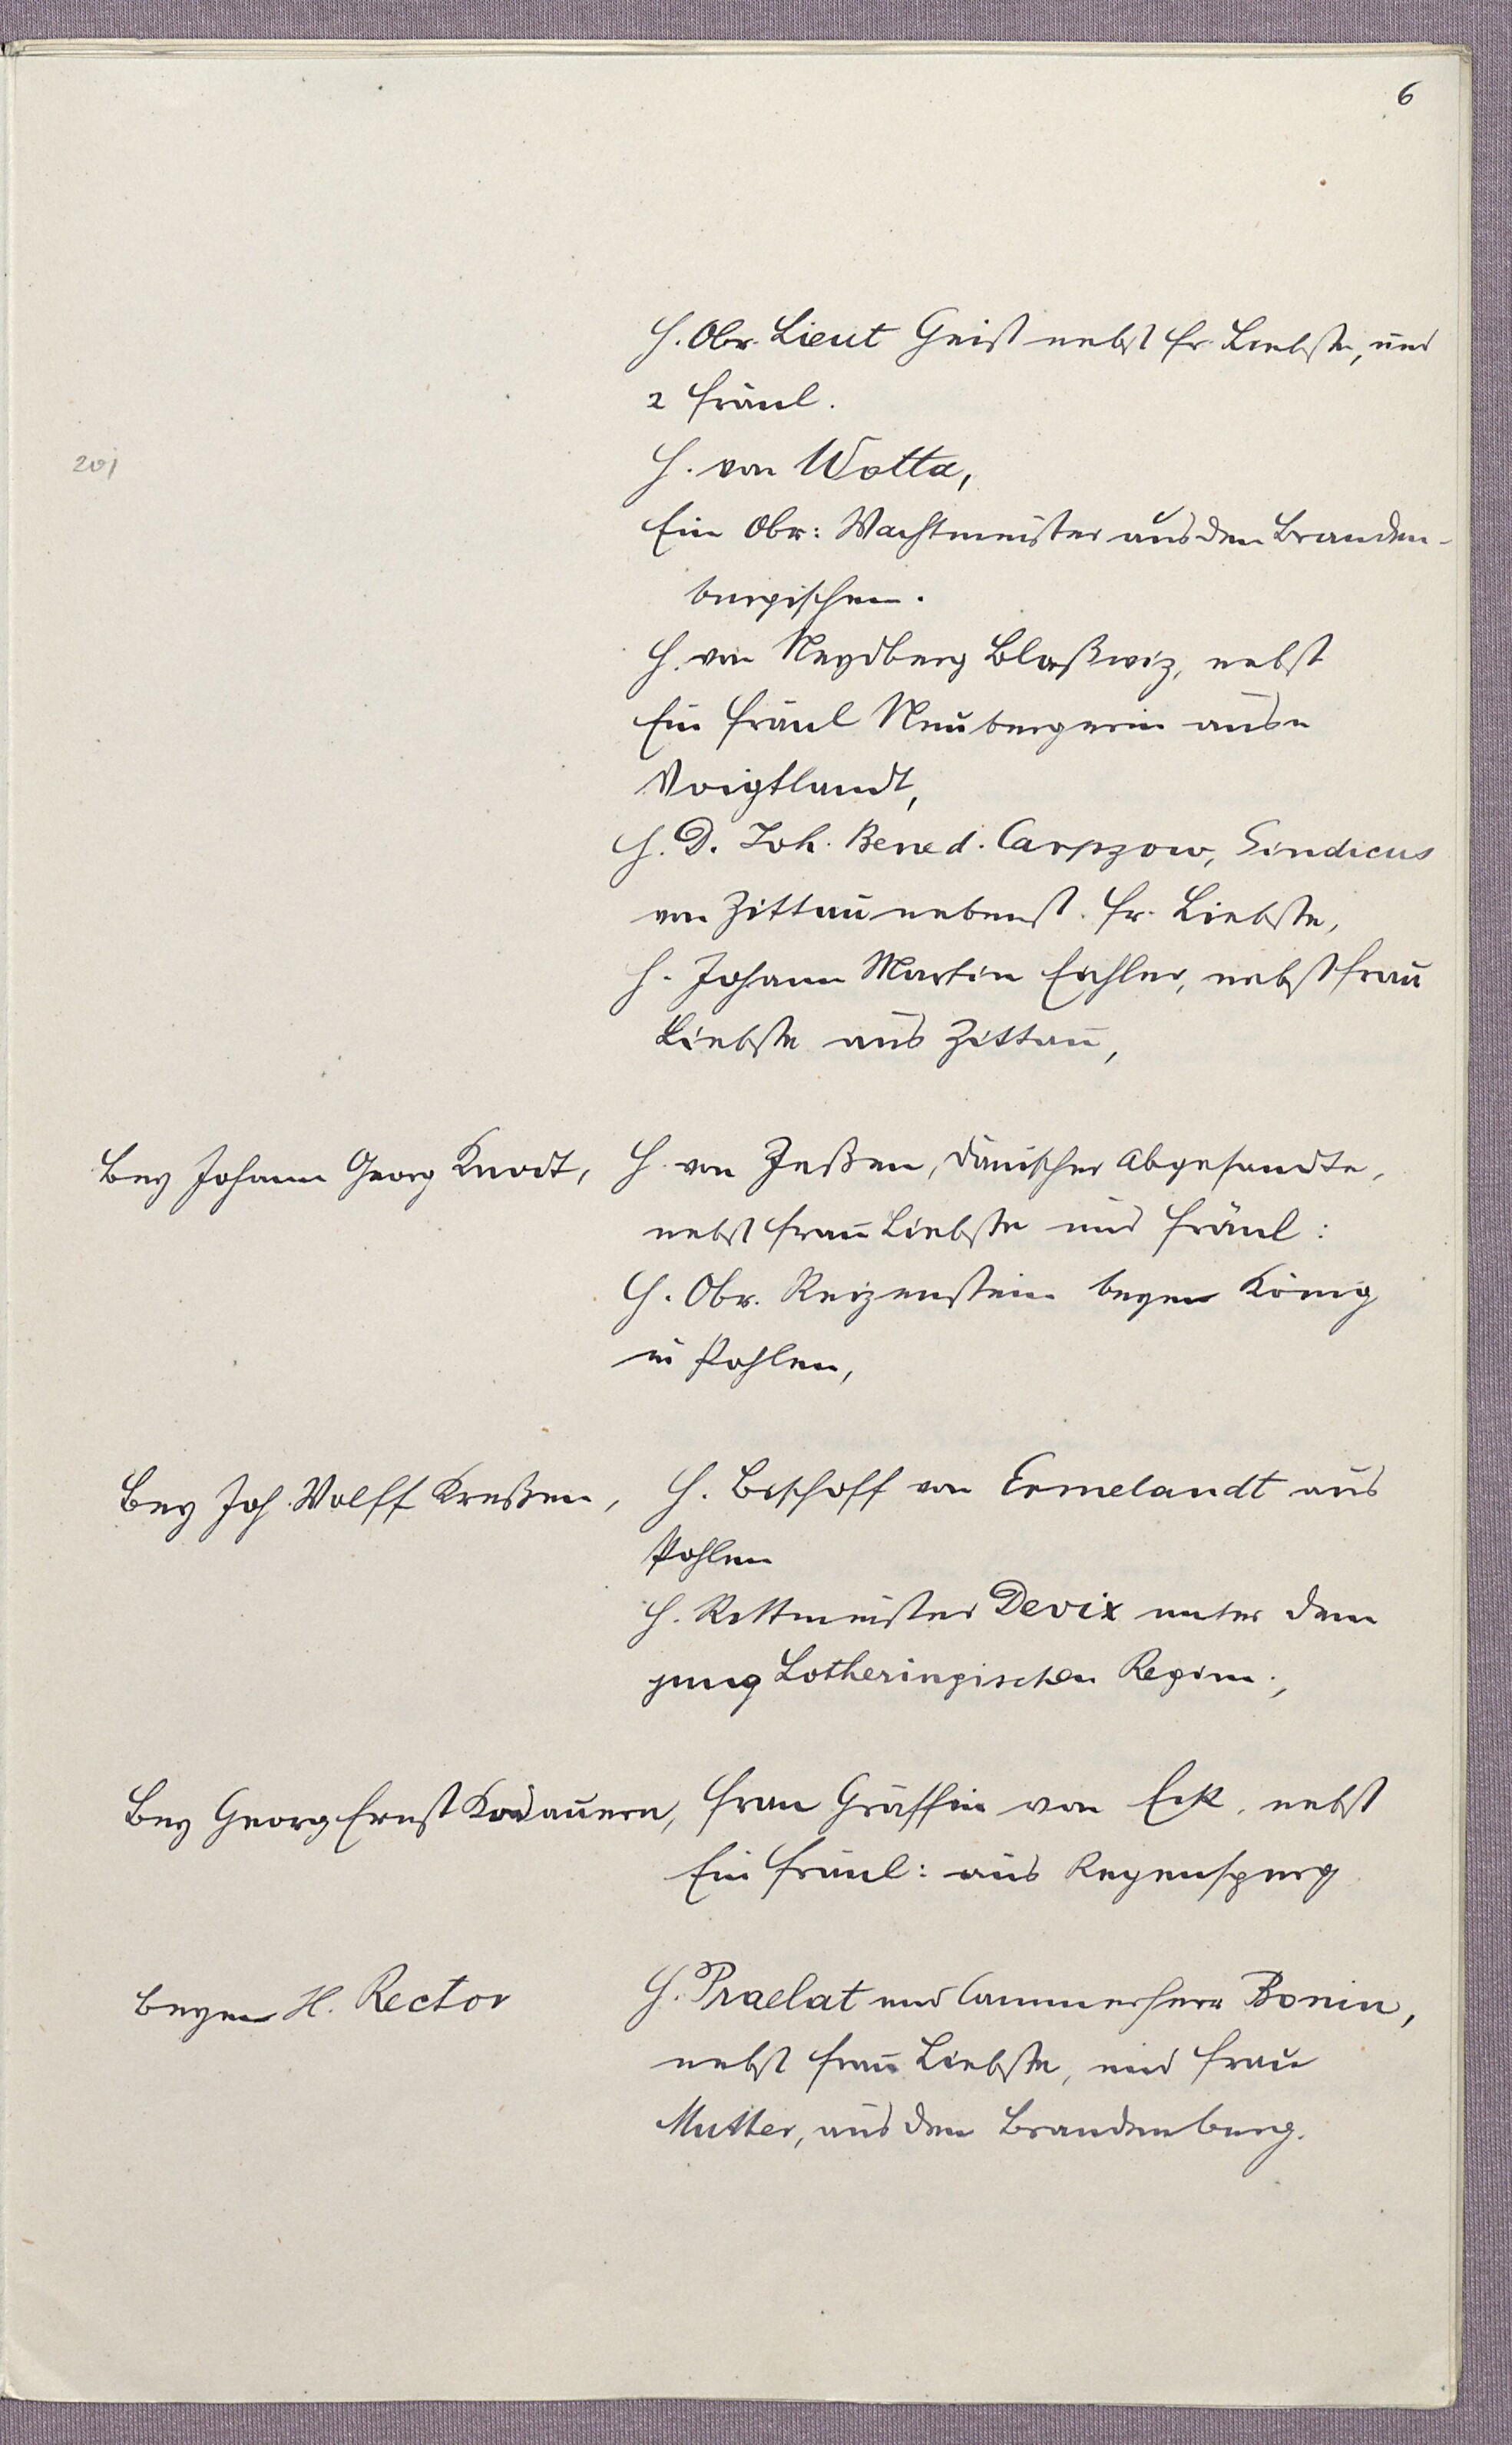 6
H. Obr. Lieut Geist nebst fr. Liebste, und
2 Fräul.
20j
H. von Wotta,
Ein Obr: Wachtmeister aus den Branden-
burgischen.
H. von Neydberg Blaßwiz, nebst
Ein Fräul Neubergerin ausn
Voigtlandt,
H. D. Joh. Bened. Carpzow, Sindicus
von Zittau nebenst. Fr. Liebste,
H. Johann Martin Eichler, nebst Frau
Liebste aus Zittau,
Bey Johann Georg Knodt, H. von Jeßen, dänischer Abgesandte,
nebst Frau Liebste und Fräul:
H. Obr. Reizenstein beym König
in Pohlen,
Bey Joh. Wolff Kreßen, H. Bischoff von Ermelandt aus
Pohlen
H. Rittmeister Devix unter dem
jung Lotheringischen Regim.,
Bey Georg Ernst Kodauern, Frau Gräffin von Eck, nebst
Ein Fräul: aus Regensperg
beym H. Rector H. Praelat und Cammerherr Bonin,
nebst Frau Liebste, und Frau
Mutter, aus dem Brandenburg.